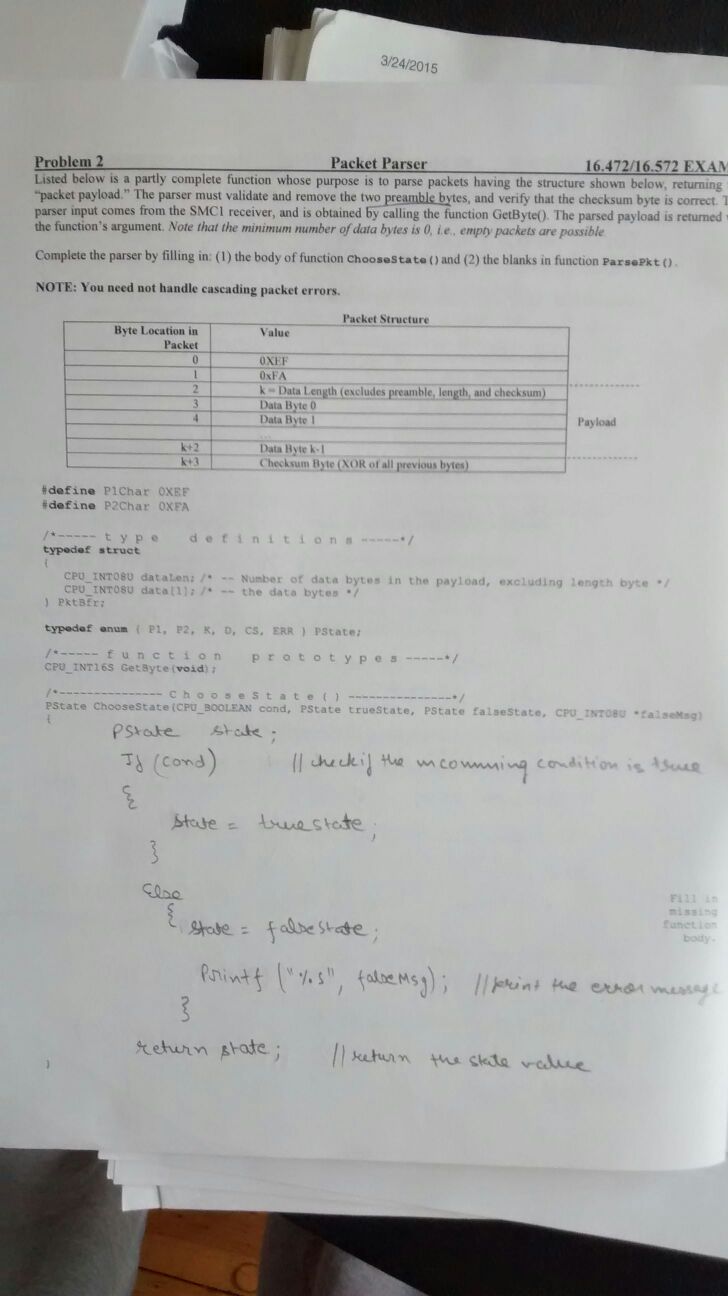 3/24/2015
Problem 2 Packet Parser 16.472/16.572 EXAM
Listed below is a partly complete function whose purpose is to parse packets having the structure shown below, returning
"packet payload." The parser must validate and remove the two preamble bytes, and verify that the checksum byte is correct.
parser input comes from the SMC1 receiver, and is obtained by calling the function GetByte(). The parsed payload is returned
the function's argument. Note that the minimum number of data bytes is 0, i.e., empty packets are possible.
Complete the parser by filling in: (1) the body of function ChooseState() and (2) the blanks in function ParsePkt().
NOTE: You need not handle cascading packet errors.
Packet Structure
Byte Location in Packet Value
0 0XEF
1 0xFA
2 k = Data Length (excludes preamble, length, and checksum)
3 Data Byte 0
4 Data Byte 1
Payload
...
k+2 Data Byte k-1
k+3 Checksum Byte (XOR of all previous bytes)
#define P1Char 0XEF
#define P2Char 0XFA
/*----- t y p e d e f i n i t i o n s -----*/
typedef struct
{
CPU_INT08U dataLen; /* -- Number of data bytes in the payload, excluding length byte */
CPU_INT08U data[1]; /* -- the data bytes */
} PktBfr;
typedef enum { P1, P2, K, D, CS, ERR } PState;
/*----- f u n c t i o n p r o t o t y p e s -----*/
CPU_INT16S GetByte(void);
/*--------------- C h o o s e S t a t e ( ) ---------------*/
PState ChooseState(CPU_BOOLEAN cond, PState trueState, PState falseState, CPU_INT08U *falseMsg)
{
PState state;
If (cond) // check if the incomming condition is true
{
state = truestate;
}
Else
{
state = falsestate;
Fill in
missing
function
body.
Printf ("%s", falseMsg); // print the error message
}
return state; // return the state value
}